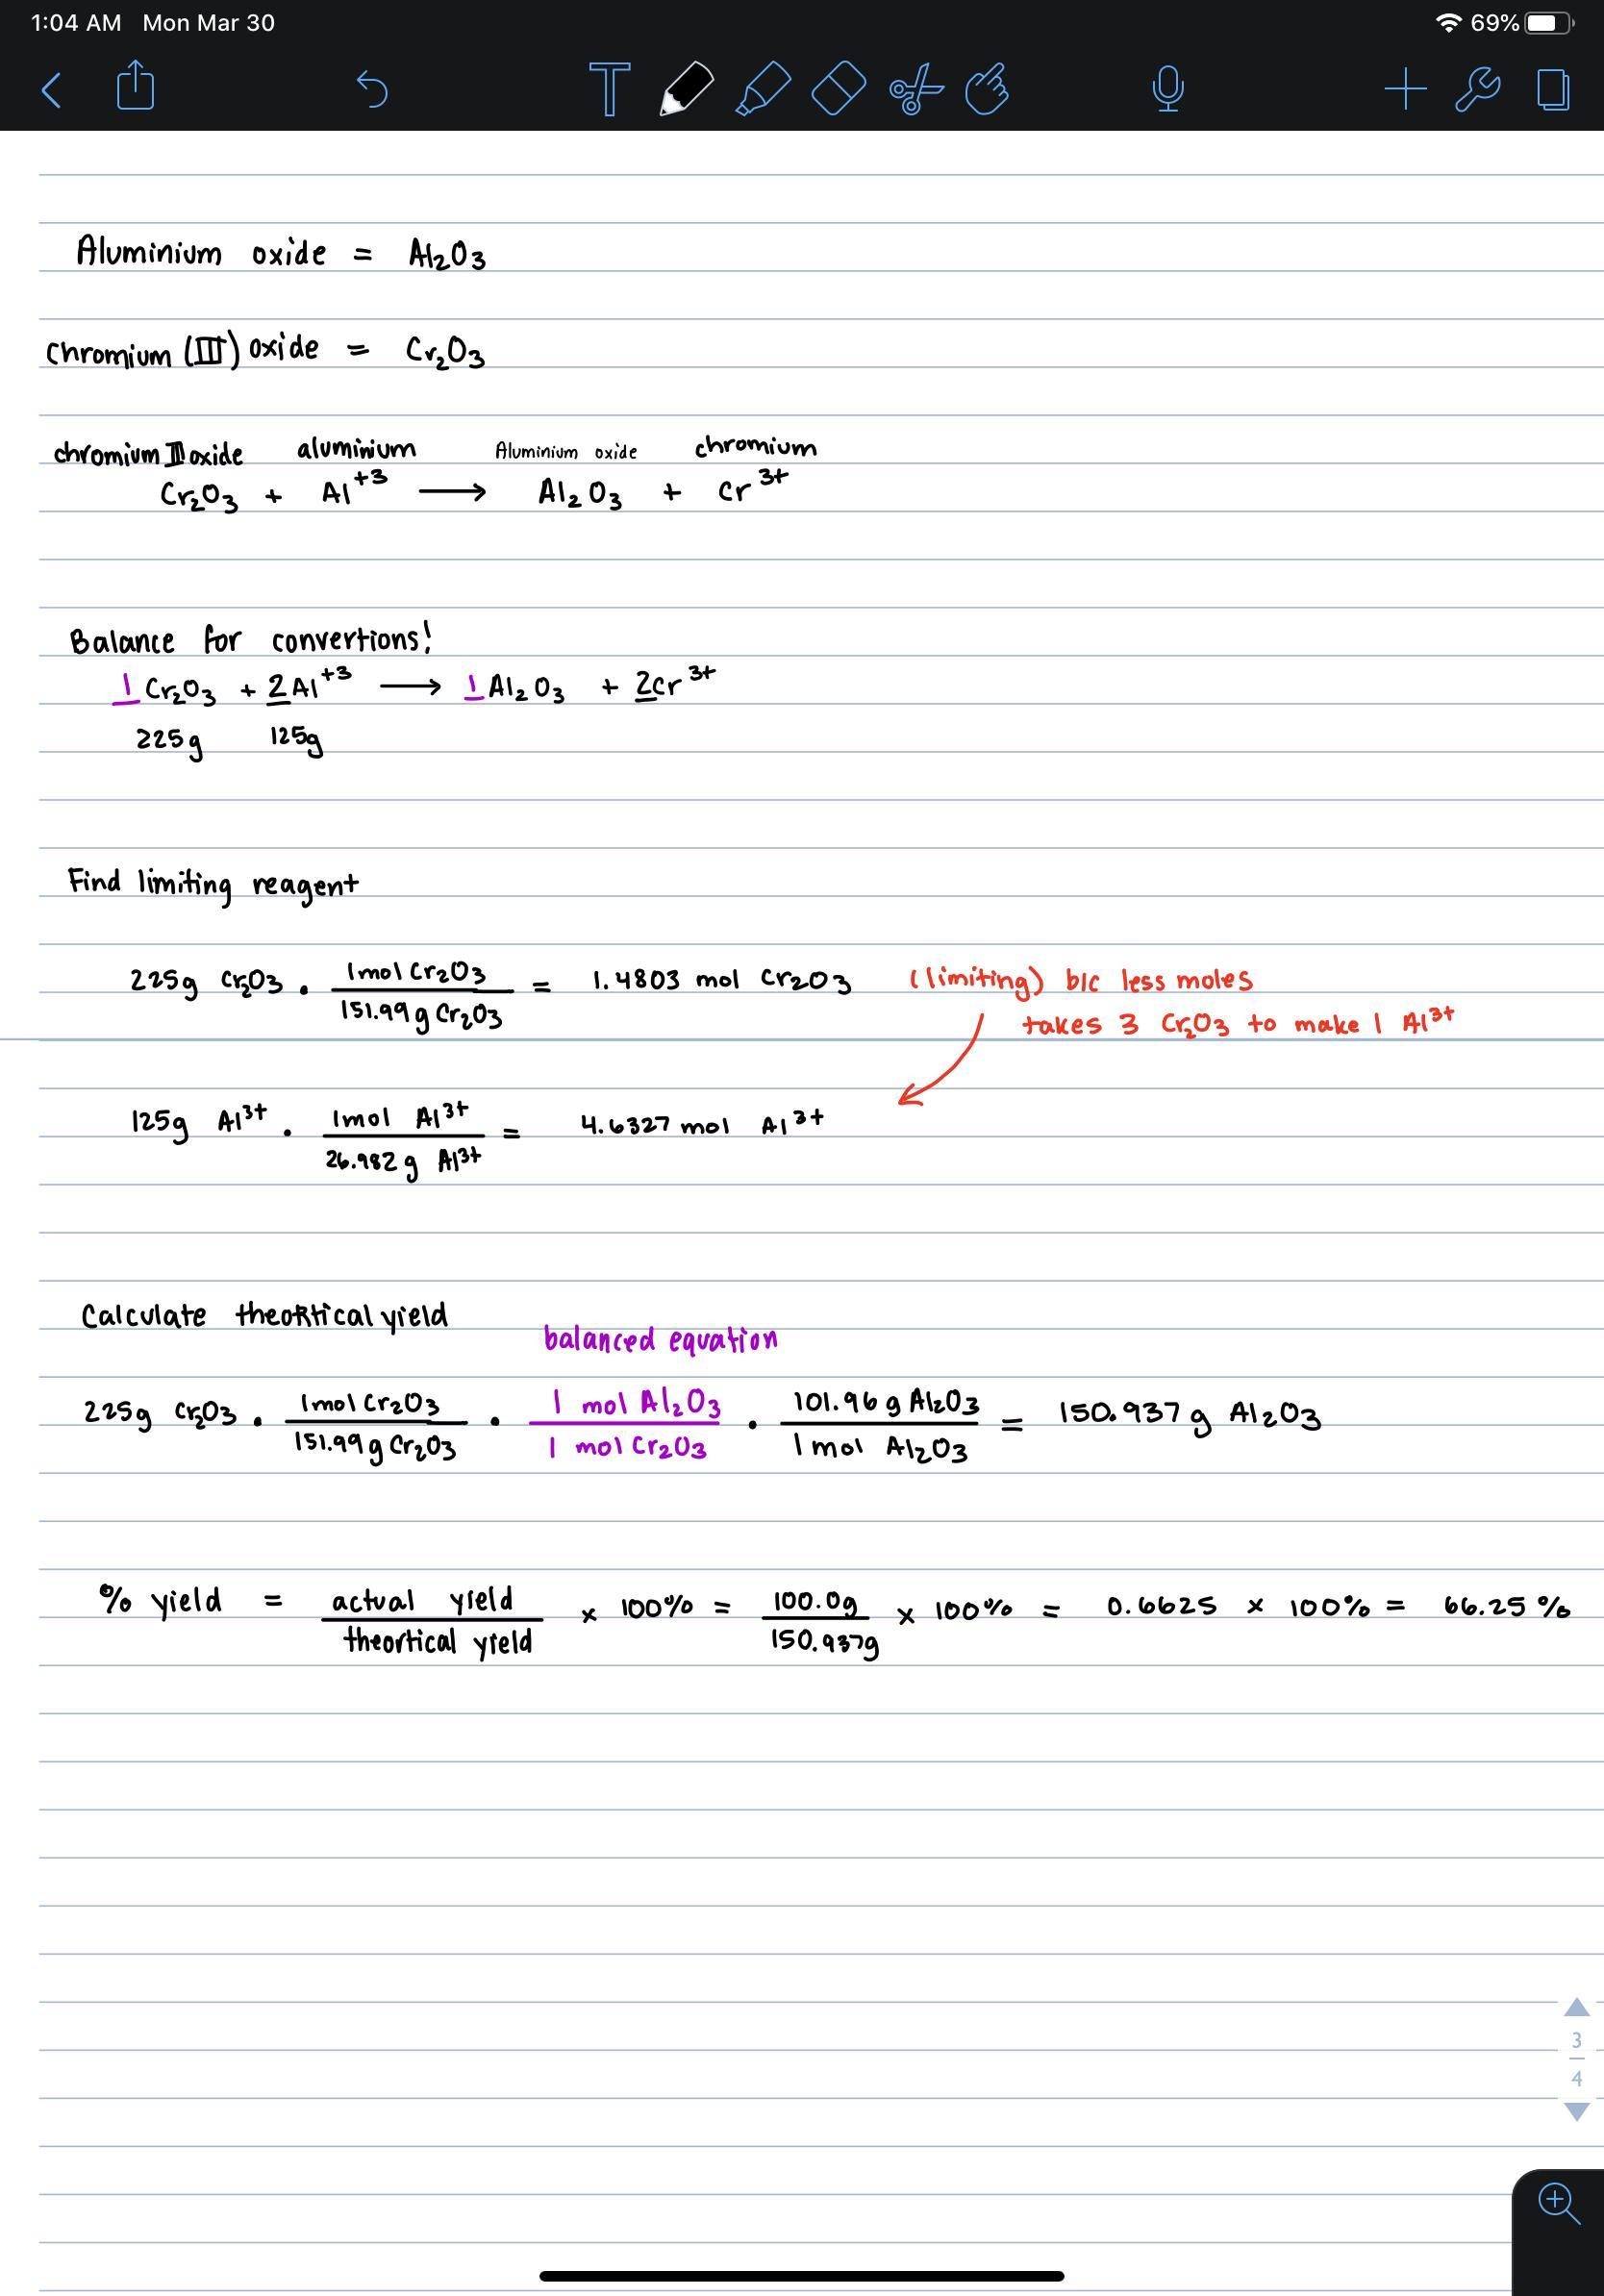 1:04 AM Mon Mar 30 69%
T
Aluminium oxide = Al₂O₃
chromium (III) oxide = Cr₂O₃
chromium III oxide aluminium Aluminium oxide chromium
Cr₂O₃ + Al⁺³ → Al₂O₃ + Cr³⁺
Balance for convertions!
1 Cr₂O₃ + 2 Al⁺³ → 1 Al₂O₃ + 2 Cr³⁺
225g 125g
Find limiting reagent
225g Cr₂O₃ · 1 mol Cr₂O₃ / 151.99 g Cr₂O₃ = 1.4803 mol Cr₂O₃ (limiting) b/c less moles
takes 3 Cr₂O₃ to make 1 Al³⁺
125g Al³⁺ · 1 mol Al³⁺ / 26.982 g Al³⁺ = 4.6327 mol Al³⁺
Calculate theortical yield
balanced equation
225g Cr₂O₃ · 1 mol Cr₂O₃ / 151.99 g Cr₂O₃ · 1 mol Al₂O₃ / 1 mol Cr₂O₃ · 101.96 g Al₂O₃ / 1 mol Al₂O₃ = 150.937 g Al₂O₃
% yield = actual yield / theortical yield × 100% = 100.0g / 150.937g × 100% = 0.6625 × 100% = 66.25 %
3
4